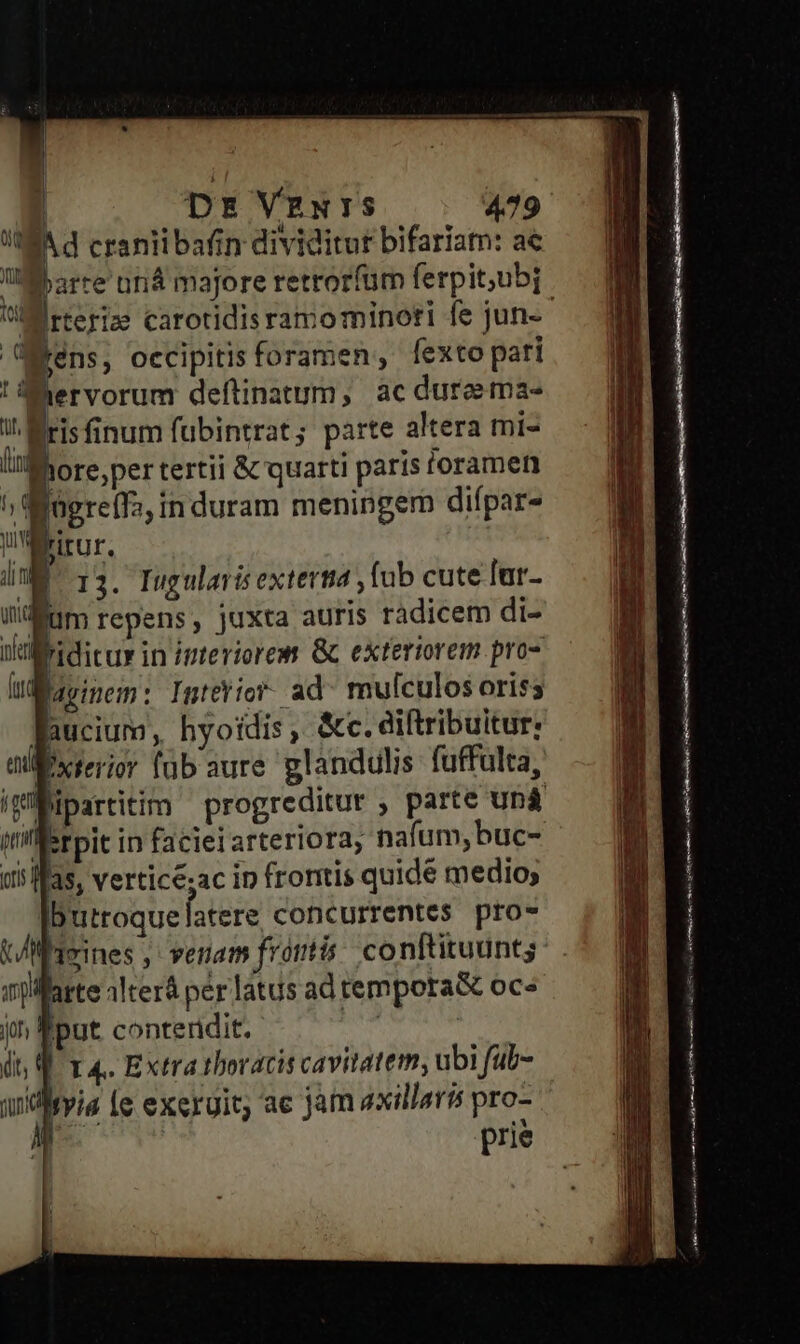 DE VENIS 479
Ad cranii basin dividitur bifariam: ac
parte unâ majore retrorſum ſerpit, ubi
arteriæ carotidis ramo minori ſe jun-
gens, occipitis foramen, ſexto pari
nervorum deſtinatum, ac duræ ma-
tris ſinum ſubintrat; parte altera mi-
nore, per tertii & quarti paris foramen
ingreſſa, in duram meningem diſpar-
titur.
13. Iugularis externa, ſub cute ſur-
ſum repens, juxta auris radicem di-
viditur in interiorem & exteriorem pro-
paginem: Interior ad muſculos oris,
faucium, hyoidis, &c. diſtribuitur:
exterior ſub aure glandulis ſuffulta,
bipartitim progreditur, parte unâ
ſerpit in faciei arteriora, naſum, buc-
cas, verticē; ac in frontis quidē medio,
utroque latere concurrentes pro-
pagines, venam frontis conſtituunt;
parte alterâ per latus ad tempora & oc-
ciput contendit.
14. Extra thoracis cavitatem, ubi ſub-
clavia ſe exeruit, ac jam axillaris pro-
prie